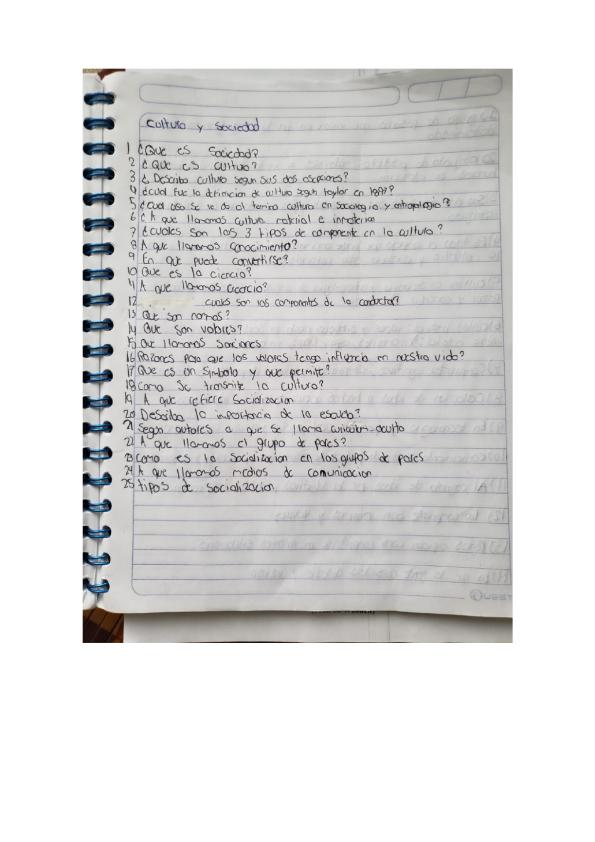 Cultura y Sociedad
1 ¿Que es Sociedad?
2 ¿Que es cultura?
3 ¿Describa cultura segun sus dos acepciones?
4 ¿cual fue la definicion de cultura segun taylor en 1877?
5 ¿cual uso se le da al termino cultura en sociologia y antropologia?
6 ¿A que llamamos cultura material e inmaterial
7 ¿cuales son los 3 tipos de componente en la cultura?
8 A que llamamos conocimiento?
9 En que puede convertirse?
10 Que es la ciencia?
11 A que llamamos creencia?
12 cuales son los componentes de la conducta?
13 Que son normas?
14 Que son valores?
15 Que llamamos sanciones
16 Razones para que los valores tenga influencia en nuestra vida?
17 Que es un Simbolo y que permite?
18 como Se transmite la cultura?
19 A que refiere Socialización
20 Describa la importancia de la escuela?
21 Segun autores a que se llama curriculum oculto
22 A que llamamos el grupo de pares?
23 como es la Socializacion en los grupos de pares
24 A que llamamos medios de comunicacion
25 tipos de Socializacion